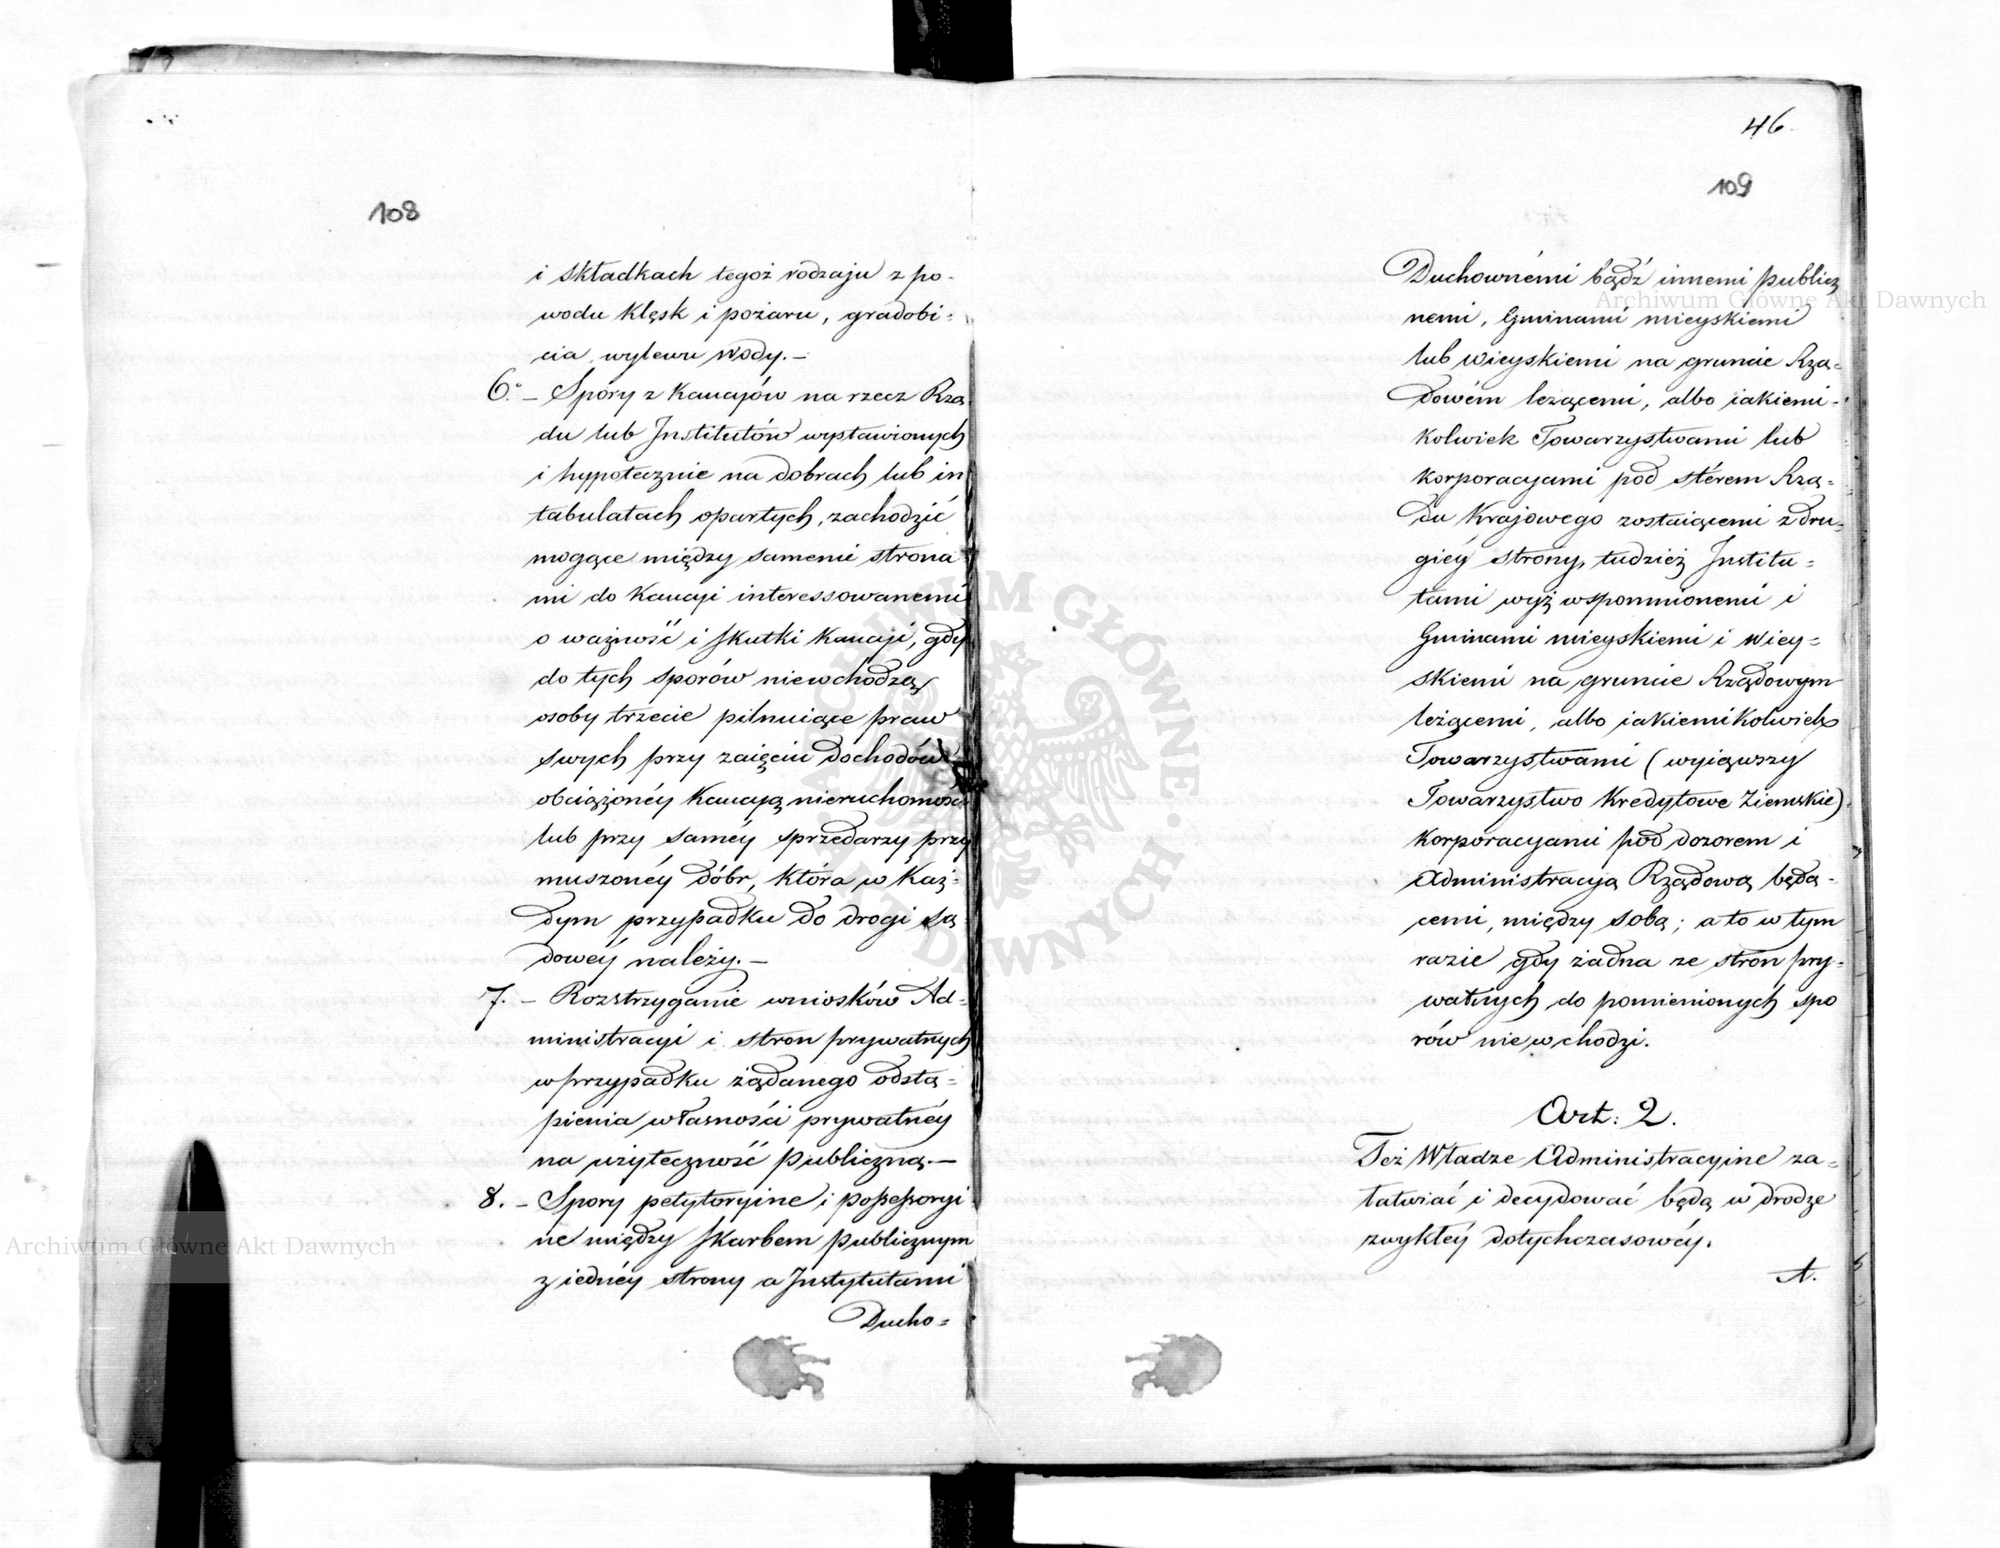 108
i składkach tegoż rodzaju z po-
wodu klęsk i pożaru, gradobi=
cia, wylewu wody.—
6.° – Spory z Kaucyów na rzecz Rzą
du lub Institutów wystawionych
i hypotecznie na dobrach lub in
tabulatach opartych, zachodzić
mogące między samemi strona
mi do Kaucyi interessowanemi
o ważność i skutki Kaucyi, gdy
do tych sporów niewchodzą
osoby trzecie pilnuiące praw
swych przy zaięciu dochodów
obciążonéy Kaucyą nieruchomości
lub przy saméy sprzedarzy przy
muszonéy dóbr, która w każ=
dym przypadku do drogi są=
dowéy należy.—
7. – Rozstrzyganie wniosków Ad=
ministracyi i stron prywatnych
w przypadku żądanego odstą=
pienia własności prywatnéy
na użyteczność publiczną.—
8. – Spory petytoryine i possessoryi
ne między skarbem publicznym
z iednéy strony a Instytutami
Ducho=
46.
109
Duchownémi bądź innemi publicz
nemi, Gminami mieyskiemi
lub wieyskiemi na gruncie Rzą=
dowém leżącemi, albo iakiemi=
kolwiek Towarzystwami lub
korporacyami pod stérem Rzą=
du Krajowego zostaiącemi z dru=
giéy strony, tudzież Institu=
tami wyż wspomnionemi i
Gminami mieyskiemi i wiey=
skiemi na gruncie Rządowym
leżącemi, albo iakiemikolwiek
Towarzystwami (wyiąwszy
Towarzystwo Kredytowe Ziemskie)
korporacyami pod dozorem i
Administracyą Rządową będą=
cemi, między sobą; a to w tym
razie gdy żadna ze stron pry=
watnych do pomienionych spo
rów nie wchodzi.
Art: 2.
Też Władze Administracyine za=
łatwiać i decydować będą w drodze
zwykłéy dotychczasowéy.
A.
Archiwum Główne Akt Dawnych
Archiwum Główne Akt Dawnych
ARCHIWUM GŁÓWNE AKT DAWNYCH